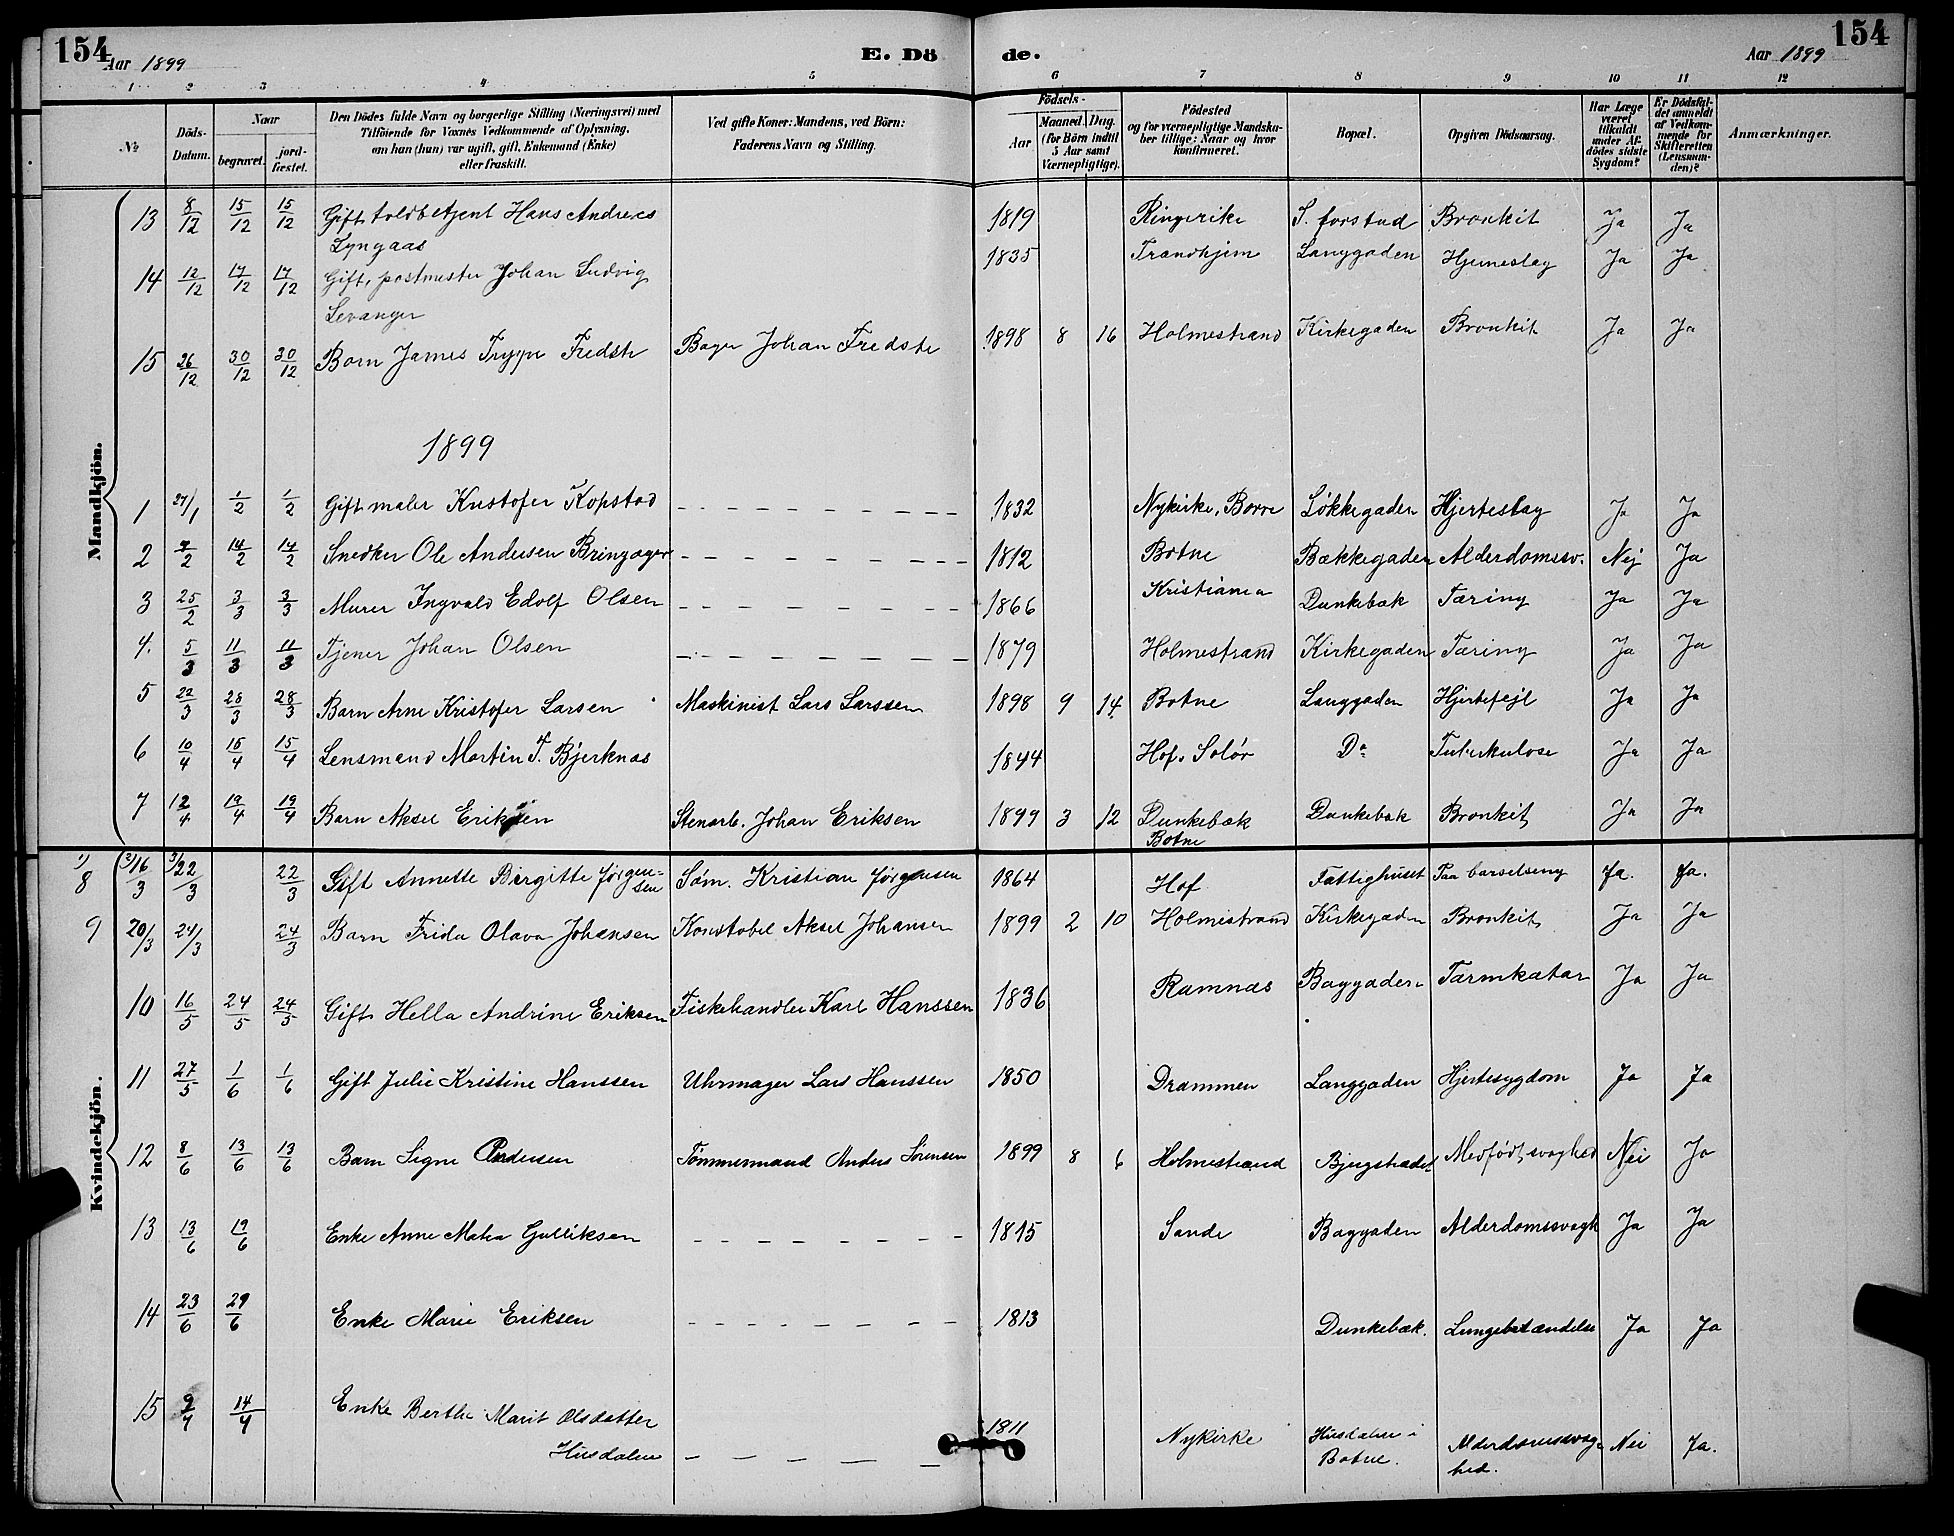 154 Aar 1899 E. Dö de. Aar 1899 154
1 2 3 4 5 6 7 8 9 10 11 12
No
Döds-Datum.
Naar
begravet. jord-fæstet.
Den Dödes fulde Navn og borgerlige Stilling (Næringsvei) med
Tilföiende for Voxnes Vedkommende af Oplysning,
om han (hun) var ugift, gift, Enkemand (Enke)
eller fraskilt.
Ved gifte Koner: Mandens, ved Börn:
Faderens Navn og Stilling.
Födsels-
Aar Maaned. Dag.
(for Börn indtil
5 Aar samt
Værnepligtige).
Födested
og for værnepligtige Mandska-
ber tillige: Naar og hvor
konfirmeret.
Bopæl.
Opgiven Dödsaarsag.
Har Læge
været
tilkaldt
under Af-
dödes sidste
Sygdom?
Er Dödsfal-
det anmeldt
af Vedkom-
mende for
Skifteretten
(Lensman-
den)?
Anmærkninger.
Mandkjön.
13 8/12 15/12 15/12 Gift toldbetjent Hans Andreas 1819 Ringerike S. forstad Bronkit Ja Ja
Lyngaas
14 12/12 17/12 17/12 Gift, postmester Johan Ludvig 1835 Trondhjem Langgaden Hjerneslag Ja Ja
Levanger
15 26/12 30/12 30/12 Barn James Trygve Fredste Bager Johan Fredste 1898 8 16 Holmestrand Kirkegaden Bronkit Ja Ja
1899
1 27/1 1/2 1/2 Gift maler Kristofer Kopstad 1832 Nykirke, Borre Løkkegaden Hjerteslag Ja Ja
2 7/2 14/2 14/2 Snedker Ole Andersen Bringager 1812 Botne Bækkegaden Alderdomssv. Nej Ja
3 25/2 3/3 3/3 Murer Ingvald Edolf Olsen 1866 Kristiania Dunkebæk Tæring Ja Ja
4. 5/3 11/3 11/3 Tjener Johan Olsen 1879 Holmestrand Kirkegaden Tæring Ja Ja
5 22/3 28/3 28/3 Barn Arne Kristofer Larsen Maskinist Lars Larssen 1898 9 14 Botne Langgaden Hjertefejl Ja Ja
6 10/4 15/4 15/4 Lensmand Martin T. Bjerknæs 1844 Hof. Solør Do Tuberkulose Ja Ja
7 12/4 19/4 19/4 Barn Aksel Eriksen Stenarb. Johan Eriksen 1899 3 12 Dunkebæk Dunkebæk Bronkit Ja Ja
Botne
Kvindekjön.
8 16/3 22/3 22/3 Gift Annette Birgitte Jørgen- Søm. Kristian Jørgensen 1864 Hof Fattighuset Paa barselseng Ja. Ja.
sen
9 20/3 24/3 24/3 Barn Frida Olava Johansen Konstabel Aksel Johansen 1899 2 10 Holmestrand Kirkegaden Bronkit Ja Ja
10 16/5 24/5 24/5 Gift Hella Andrine Eriksen Fiskehandler Karl Hanssen 1836 Ramnæs Baggaden Tarmkatar Ja Ja
11 27/5 1/6 1/6 Gift Julie Kristine Hanssen Uhrmager Lars Hanssen 1850 Drammen Langgaden Hjertesygdom Ja Ja
12 8/6 13/6 13/6 Barn Signe Andersen Tømmermand Anders Sørensen 1899 8 6 Holmestrand Bjergstrædet Medfødt svaghed Nei Ja
13 13/6 19/6 Enke Anne Matea Gulliksen 1815 Sande Baggaden Alderdomssvagh Ja Ja
14 23/6 29/6 Enke Marie Eriksen 1813 Dunkebæk. Lungebetændelse Ja Ja
15 9/7 14/7 Enke Berthe Marit Olsdatter 1811 Nykirke Husdalen i Alderdomssvag- Nei Ja.
Husdalen Botne. hed.